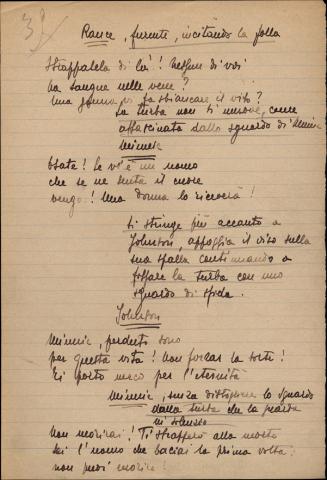 3)
Rance, furente, incitando la folla
Strappatela di là! Nessun di voi
ha sangue nelle vene?
Una gonna vi fa sbiancare il viso?
La turba non si muove, come
affascinata dallo sguardo di Minnie
Minnie
Osate! Se v'è un uomo
che se ne senta il cuore
venga! Una donna lo riceverà!
Si stringe più accanto a
Johnson, appoggia il viso sulla
sua spalla continuando a
fissare la turba con uno
sguardo di sfida.
Johnson
Minnie, perduto sono
per questa vita! Non forzar la sorte!
Ti porto meco per l'eternità
Minnie, senza distogliere lo sguardo
dalla turba che la guarda
in silenzio
Non morirai! Ti strappero alla morte
Sei l'uomo che baciai la prima volta:
non puoi morire!